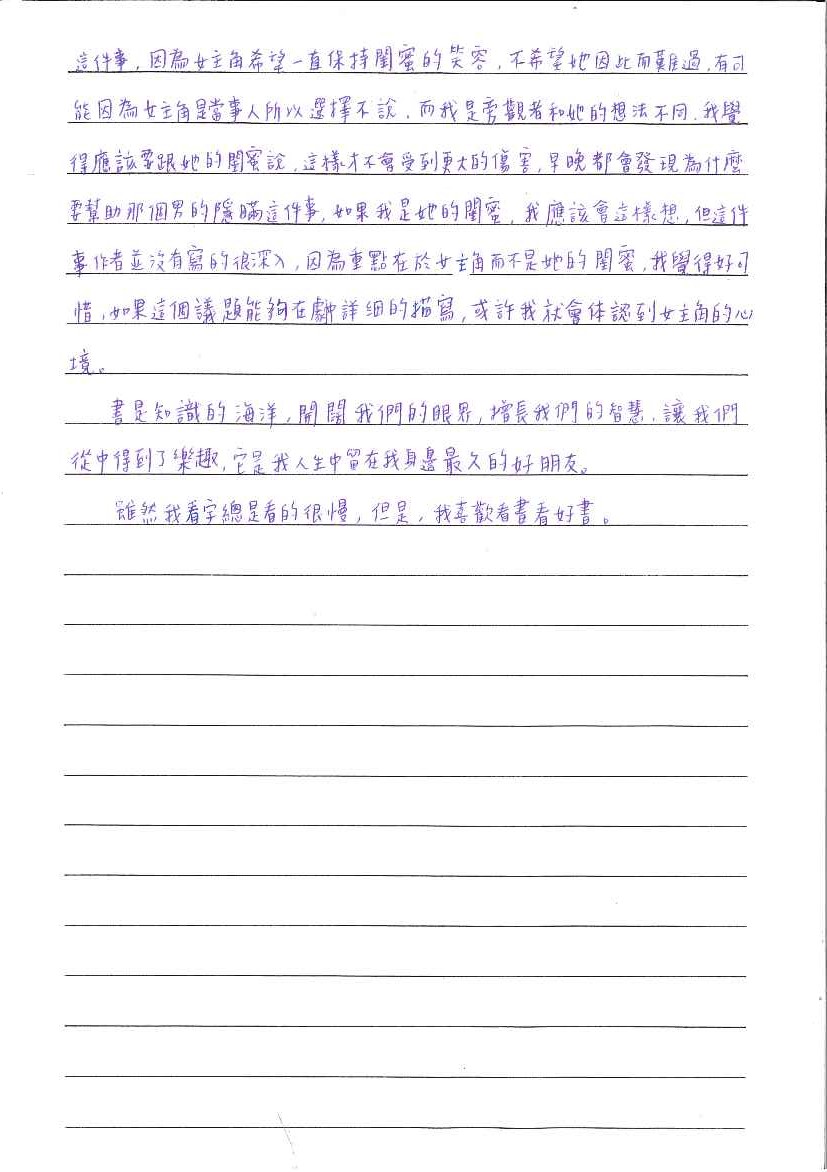 這件事，因為女主角希望一直保持閨蜜的笑容，不希望她因此而難過，有可
能因為女主角是當事人所以選擇不說，而我是旁觀者和她的想法不同，我覺
得應該要跟她的閨蜜說，這樣才不會受到更大的傷害，早晚都會發現為什麼
要幫助那個男的隱瞞這件事，如果我是她的閨蜜，我應該會這樣想，但這件
事作者並沒有寫的很深入，因為重點在於女主角而不是她的閨蜜，我覺得好可
惜，如果這個議題能夠在劇中詳細的描寫，或許我就會体認到女主角的心
境。
書是知識的海洋，開闊我們的眼界，增長我們的智慧，讓我們
從中得到了樂趣，它是我人生中留在我身邊最久的好朋友。
雖然我看字總是看的很慢，但是，我喜歡看書看好書。